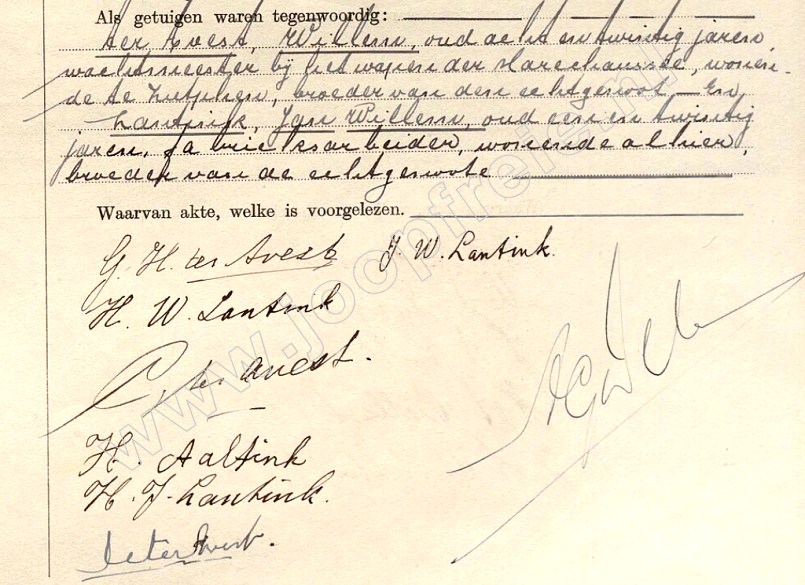 Als getuigen waren tegenwoordig:
ter Avest, Willem, oud acht en twintig jaren,
wachtmeester bij het wapen der Marechaussée, wonen-
de te Zutphen, broeder van den echtgenoot — En
Lantink, Jan Willem, oud een en twintig
jaren, fabrieksarbeider, wonende alhier,
broeder van de echtgenoote
Waarvan akte, welke is voorgelezen.
G. H. ter Avest J. W. Lantink.
H. W. Lantink
ter Avest.
H. Aaltink
H. J. Lantink.
ter Avest.
www.joopfreis.nl